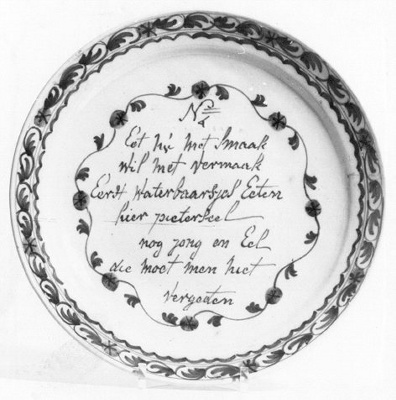 N° 4
Eet nu met smaak
wil met vermaak
Eerst waterbaarsjes Eeten
hier pieterseel
nog jong en Eel
die moet men niet
vergeeten